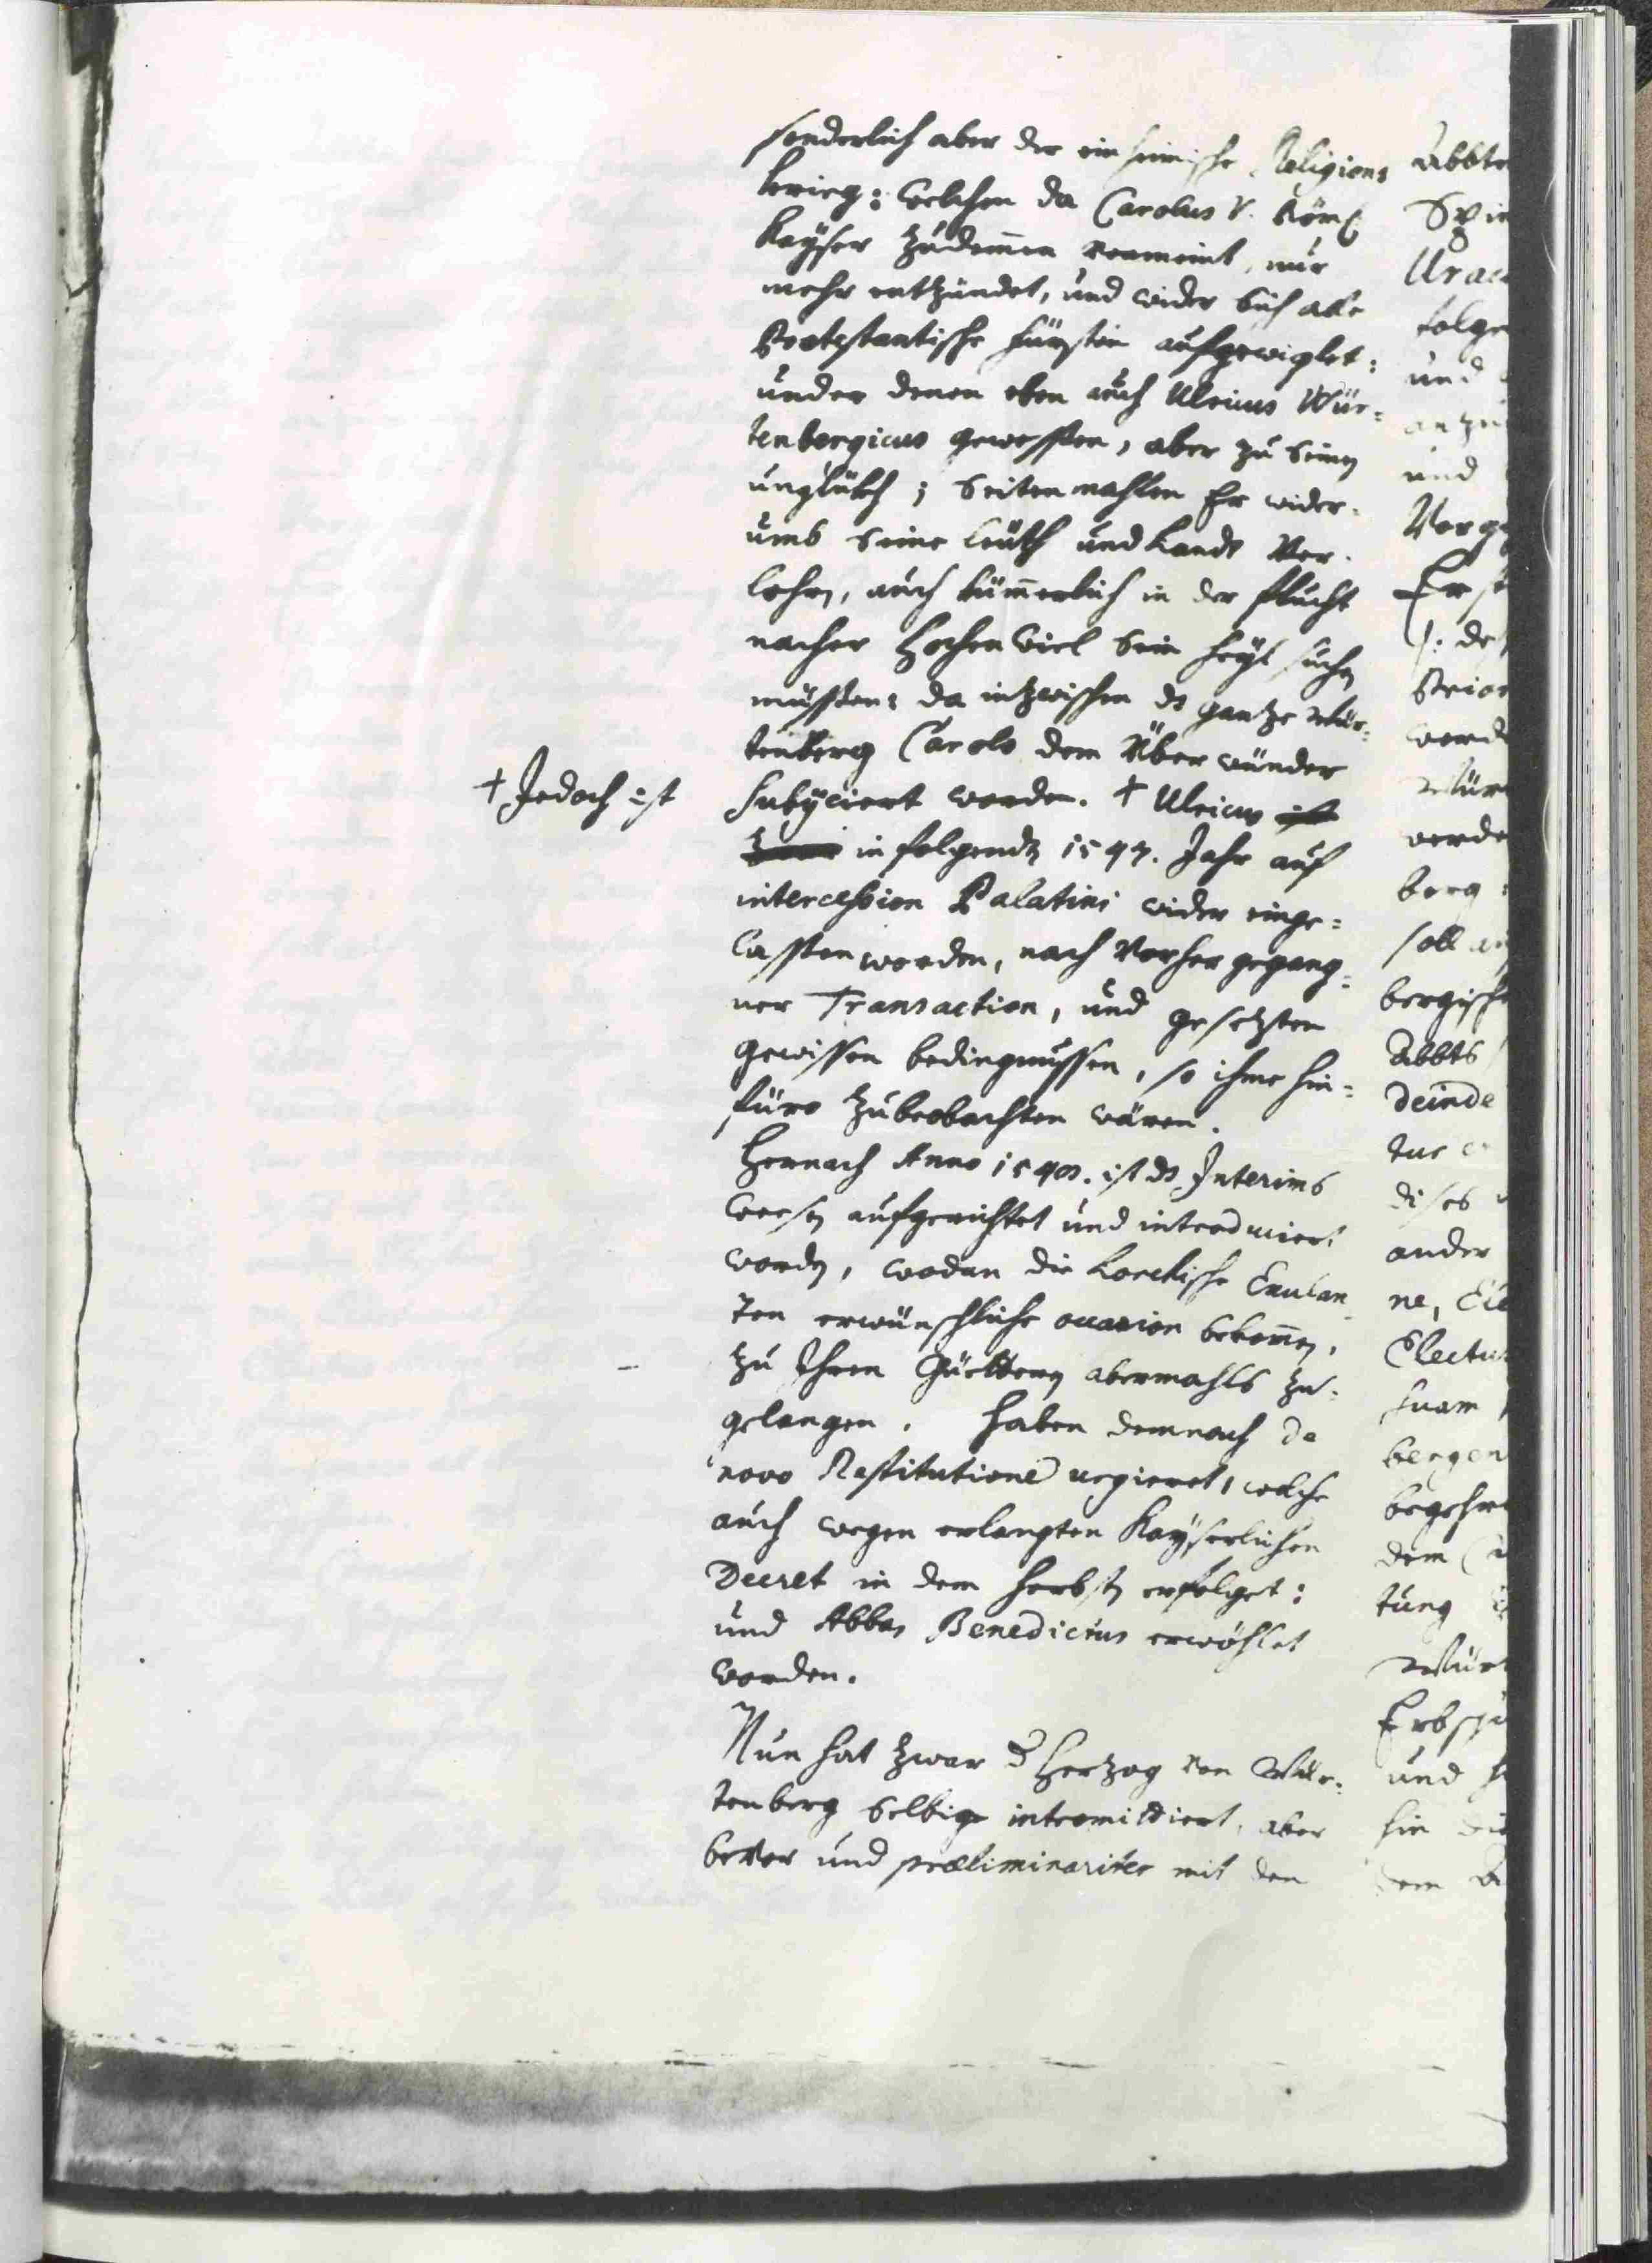 sonderlich aber der einheimische Religions
krieg: welchen da Carolus V. Röm.
Kayser zudemmen vermeint, nur
mehr entzündet, und wider sich alle
Protestantische fürsten aufgewiglet:
under denen eben auch Ulricus Wür-
tenbergicus gewessen, aber zu seinen
unglükh; seitenmahlen Er wider-
umb seine leüth und Landt Ver-
lohren, auch kümmerlich in der flucht
nacher Hochen Wiel sein heyl suchen
müssen: da inzwischen ds gantze Wür-
tenberg Carolo dem Überwünder
† Jedoch ist
subyciert worden. † Ulricus ist
in folgendten 1547. Jahr auf
intercession Palatini wider einge=
lassen worden, nach Vorhergegang=
ner Transaction, und gesetzten
gewissen bedingnussen, so ihme hin=
füro zubeobachten wären.
Hernach Anno 1548. ist ds Interims
weesen aufgerichtet und introduciert
worden, wodan die Lorchische Exulan
ten erwünschliche occasion bekommen,
zu Ihren Güettern abermahls zu=
gelangen. Haben demnach de
novo Restitutione urgieret, welche
auch wegen erlangten Kayserlichen
Decret in dem herbsten erfolget:
und Abbas Benedictus erwöhlet
worden.
Nun hat zwar d Hertzog von Wür-
tenberg selbige intromittiert, aber
bevor und præliminariter mit den
Abbte
Urac
folge
und
anzu
und
Vorge
Er
Prior
word
Wür
werde
berg
soll
bergische
Abbts
deinde
tus
dises
ander
ne,
Electus
suam
bergen
begehrt
dem
tung
Würt
und
hin die
dem